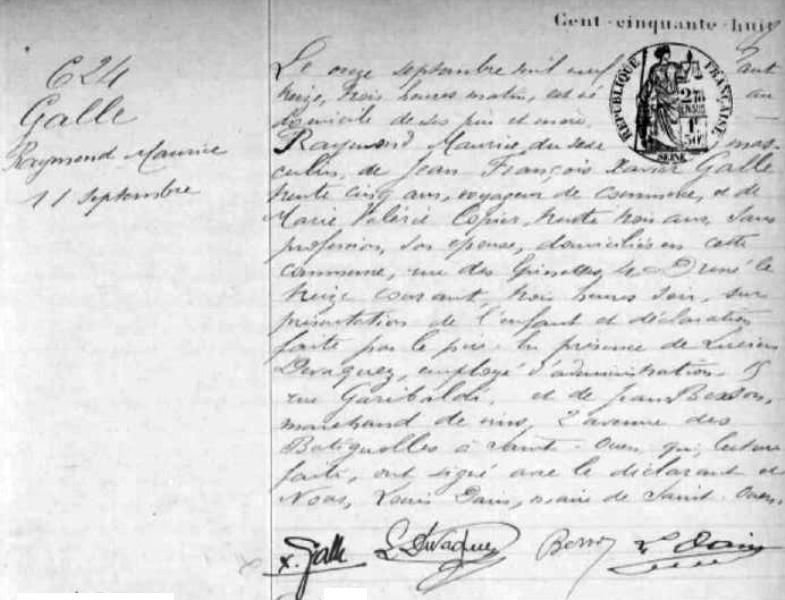 Cent-cinquante-huit
624
Galle
Raymond Maurice
11 septembre
Le onze septembre mil neuf cent
treize, trois heures matin, est né au
domicile de ses père et mère,
Raymond Maurice, du sexe mas-
culin, de Jean François Xavier Galle
trente cinq ans, voyageur de commerce, et de
Marie Valérie Copier, trente trois ans, sans
profession, son épouse, domiciliés en cette
commune, rue des 4. Dressé le
treize courant, trois heures soir, sur
présentation de l'enfant et déclaration
faite par le père en présence de Lucien
Devaquez, employé d'administration, 15
rue Garibaldi, et de Jean Besson,
marchand de vins, 2 avenue des
Batignolles à Saint-Ouen, qui, lecture
faite, ont signé avec le déclarant et
Nous, Louis Dain, maire de Saint-Ouen.
RÉPUBLIQUE FRANÇAISE
SEINE
X. Galle L. Devaquez Besson L. Dain